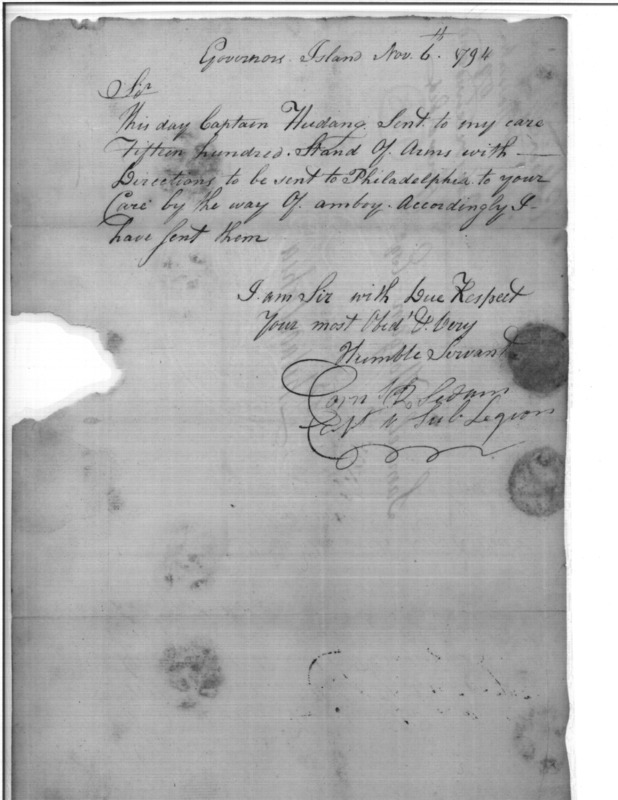 Governors Island Nov. 6th. 1794
Sir
This day Captain sent to my care
Fifteen hundred. Stand Of Arms with
Directions to be sent to Philadelphia to your
Care by the way Of amboy. Accordingly I
have sent them
I am Sir with Due Respect
Your most Obedt & Very
Humble Servant
Corn. R Sedam
Capt 1t Sub Legion